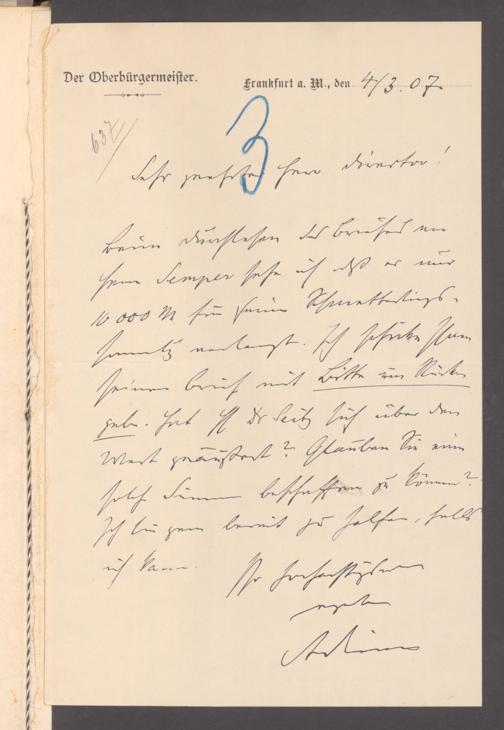 Der Oberbürgermeister.
Frankfurt a. M., den 4/3. 07.
637
3
Sehr geehrter Herr Director!
Beim Durchlesen des Briefes an
Herrn Semper sehe ich daß er nur
10 000 M für seine Schmetterlings-
sammlg verlangt. Ich schicke Ihnen
seinen Brief mit Bitte um Rück
gabe. Hat H Dr Seitz sich über den
Wert geäußert? Glauben Sie eine
solche Summe beschaffen zu können?
Ich bin gern bereit zu helfen, falls
ich kann.
Ihr hochachtungsvoll
ergeb
Adickes